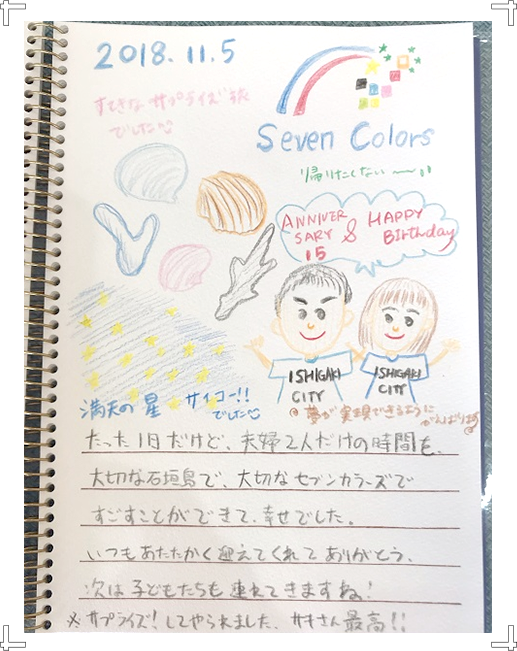 2018.11.5
すてきなサプライズ旅
でした
Seven Colors
帰りたくない〜
ANNIVER
SARY & HAPPY
15 Birthday
ISHIGAKI
CITY
ISHIGAKI
CITY
満天の星 サイコー!!
でした
@夢が実現できるように
がんばります@
たった1日だけど、夫婦2人だけの時間を、
大切な石垣島で、大切なセブンカラーズで
すごすことができて、幸せでした。
いつもあたたかく迎えてくれてありがとう、
次は子どもたちも連れてきますね!
※サプライズ!してやられました、さん最高!!